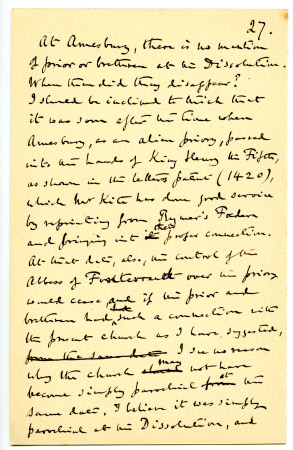 27.
At Amesbury, there is no mention
of prior or brethren at the Dissolution.
When then did they disappear?
I should be inclined to think that
it was soon after the time when
Amesbury, as an alien priory, passed
into the hands of King Henry the Fifth,
as shown in the letters patent (1420),
which Mr Kite has done good service
by reprinting from Rymer's Fœdera
and bringing into its proper connection.
At that date, also, the control of the
Abbess of Fontevrault over the priory
would cease, and if the prior and
brethren had such a connection with
the present church as I have suggested,
from the same date I see no reason
why the church may not have
become simply parochial from at the
same date. I believe it was simply
parochial at the Dissolution, and